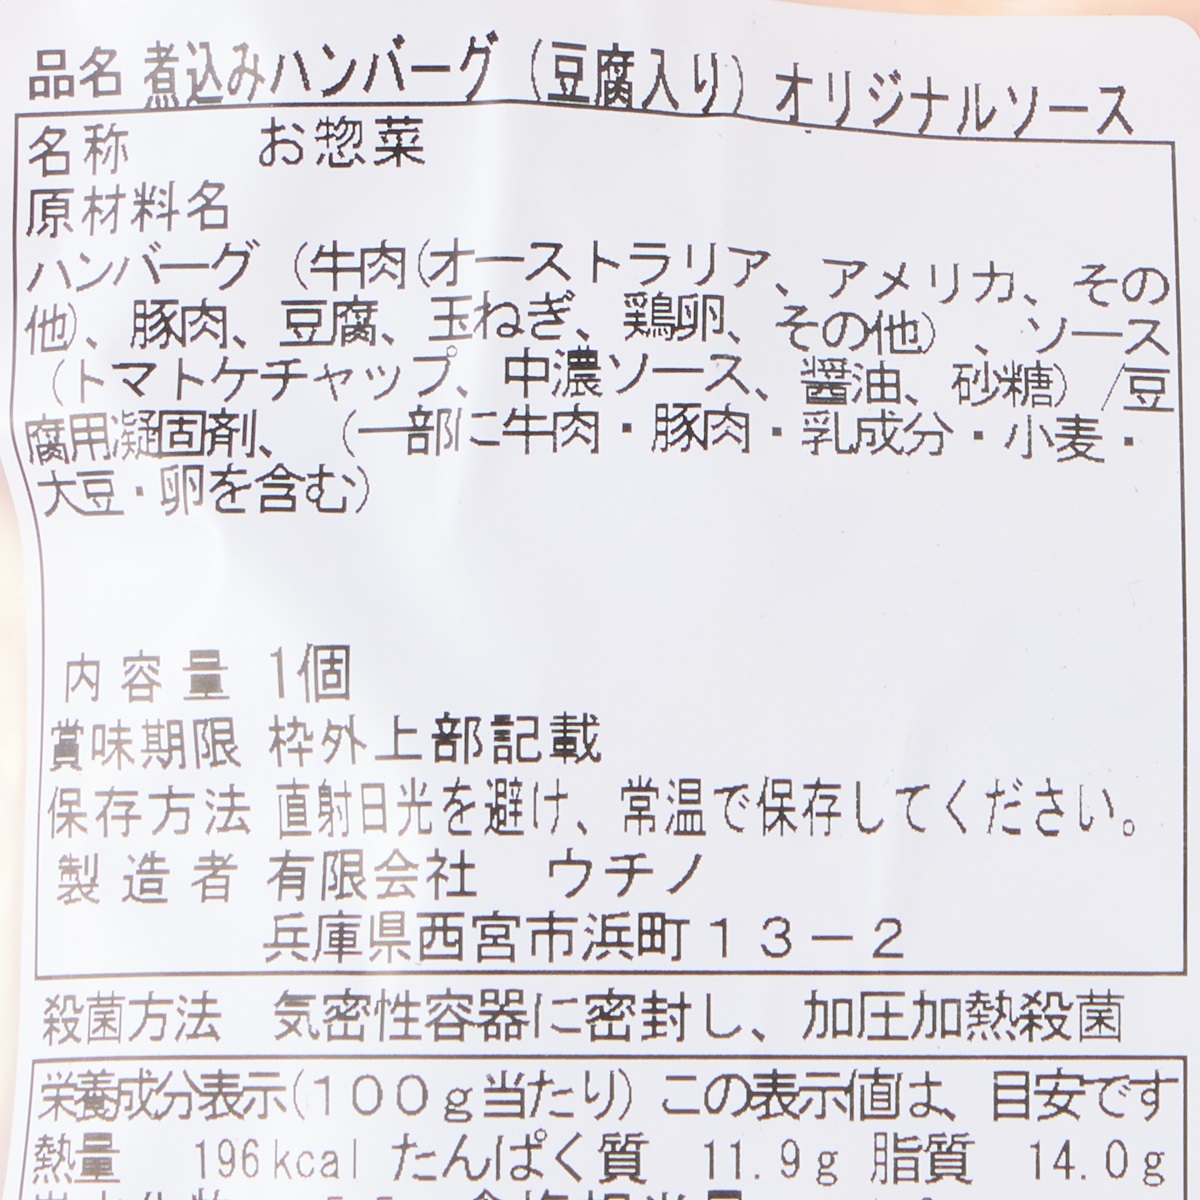 品名 煮込みハンバーグ（豆腐入り）オリジナルソース
名称 お惣菜
原材料名
ハンバーグ（牛肉(オーストラリア、アメリカ、その
他)、豚肉、豆腐、玉ねぎ、鶏卵、その他）、ソース
（トマトケチャップ、中濃ソース、醤油、砂糖）/豆
腐用凝固剤、（一部に牛肉・豚肉・乳成分・小麦・
大豆・卵を含む）
内容量 1個
賞味期限 枠外上部記載
保存方法 直射日光を避け、常温で保存してください。
製造者 有限会社 ウチノ
兵庫県西宮市浜町１３－２
殺菌方法 気密性容器に密封し、加圧加熱殺菌
栄養成分表示(１００ｇ当たり) この表示値は、目安です
熱量 196kcal たんぱく質 11.9g 脂質 14.0g